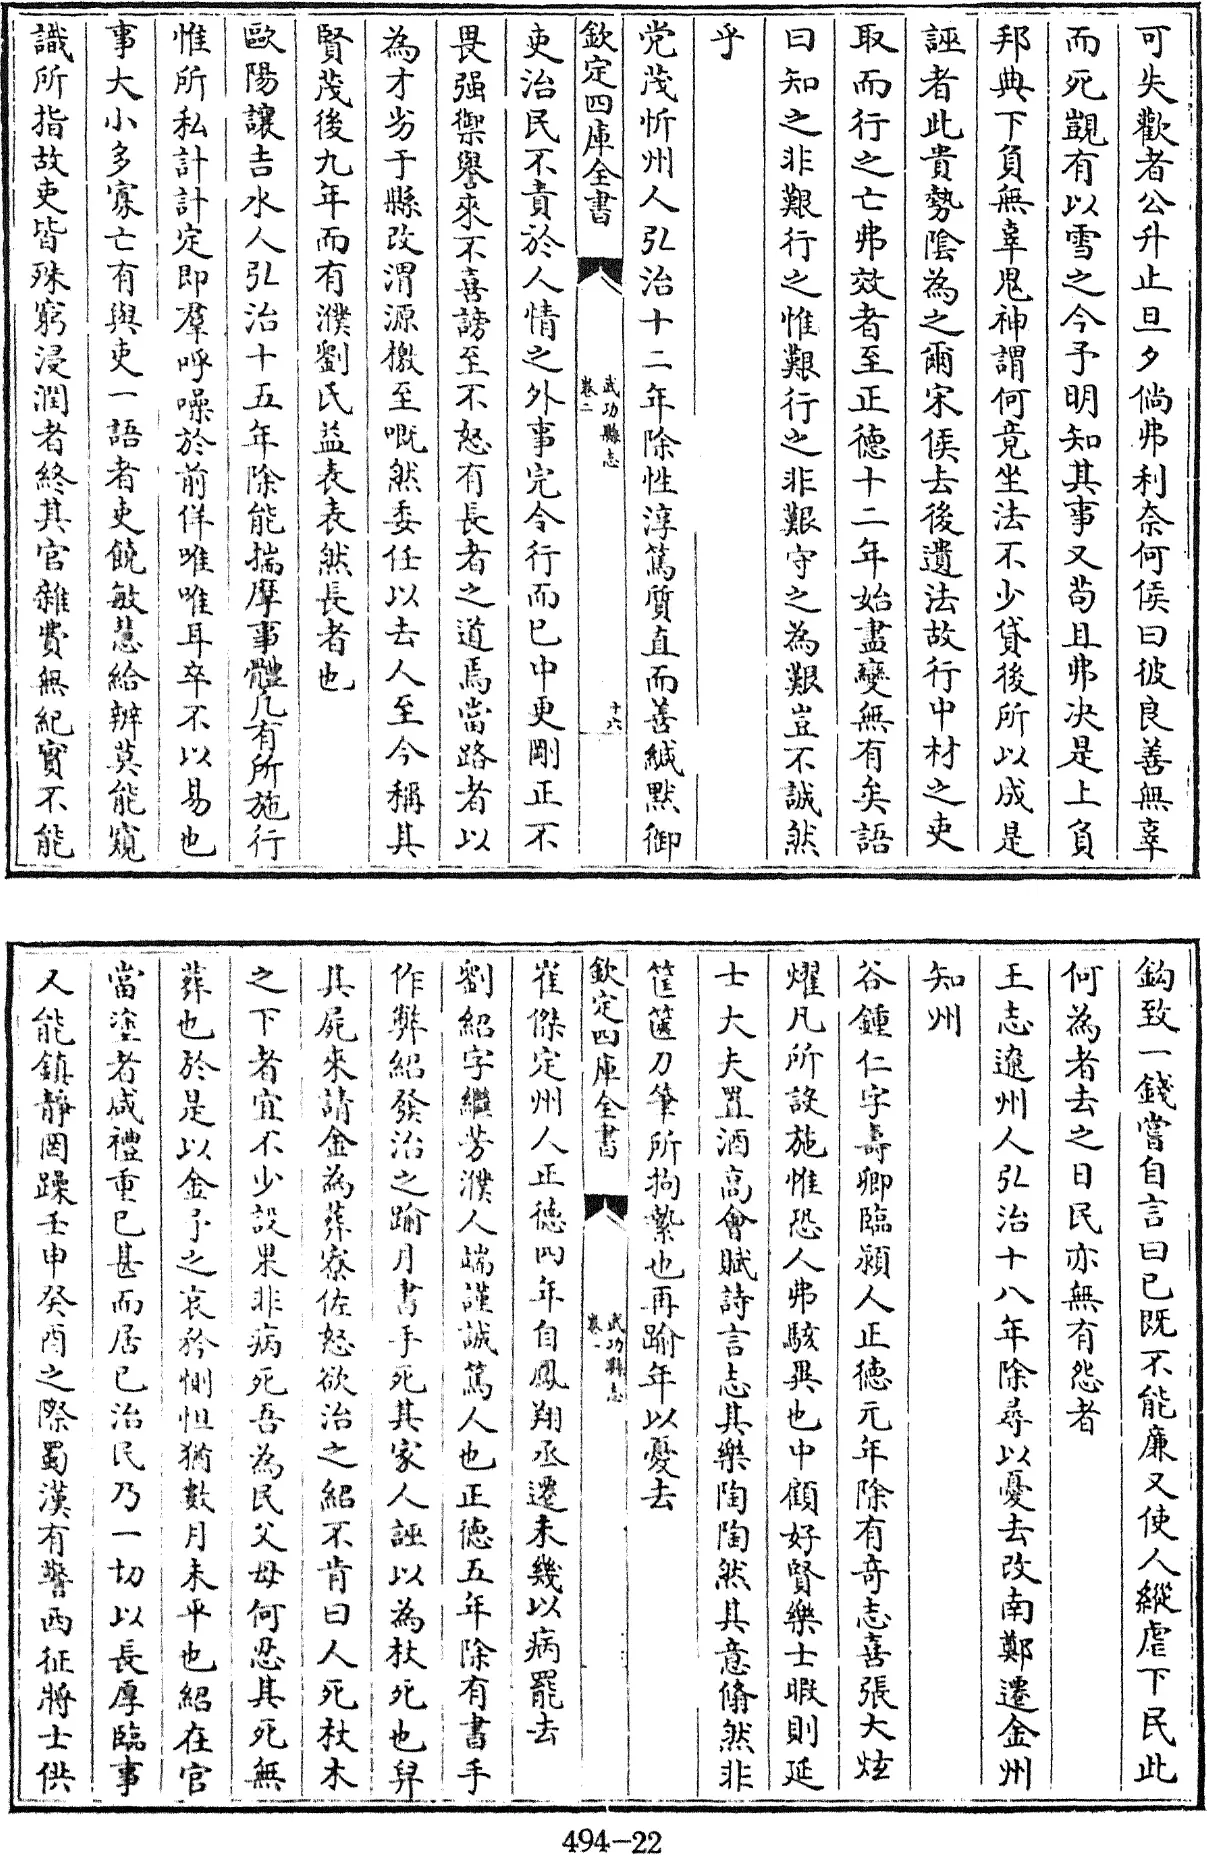 可失歡者公升止旦夕倘弗利奈何侯曰彼良善無辜
而死覬有以雪之今予明知其事又苟且弗决是上負
邦典下負無辜鬼神謂何竟坐法不少貸後所以成是
誣者此貴勢陰為之爾宋侯去後遺法故行中材之吏
取而行之亡弗效者至正德十二年始盡變無有矣語
曰知之非艱行之惟艱行之非艱守之為艱豈不誠然
乎
党茂忻州人弘治十二年除性淳篤質直而善緘默御
欽定四庫全書
武功縣志
卷二
十六
吏治民不責於人情之外事完令行而已中更剛正不
畏强禦譽來不喜謗至不怒有長者之道焉當路者以
為才劣于縣改渭源檄至嘅然委任以去人至今稱其
賢茂後九年而有濮劉氏益表表然長者也
歐陽讓吉水人弘治十五年除能揣摩事體凡有所施行
惟所私計計定即羣呼噪於前佯唯唯耳卒不以易也
事大小多寡亡有與吏一語者吏饒敏慧給辨莫能窺
識所指故吏皆殊窮浸潤者終其官雜費無紀實不能
鈎致一錢嘗自言曰已既不能廉又使人縱虐下民此
何為者去之日民亦無有怨者
王志遼州人弘治十八年除尋以憂去改南鄭遷金州
知州
谷鍾仁字壽卿臨潁人正德元年除有奇志喜張大炫
燿凡所設施惟恐人弗駭異也中顧好賢樂士暇則延
士大夫置酒高會賦詩言志其樂陶陶然其意翛然非
筐篋刀筆所拘縶也再踰年以憂去
欽定四庫全書
武功縣志
崔傑定州人正德四年自鳳翔丞遷未幾以病罷去
劉紹字繼芳濮人端謹誠篤人也正德五年除有書手
作弊紹發治之踰月書手死其家人誣以為杖死也舁
其屍來請金為葬寮佐怒欲治之紹不肯曰人死杖木
之下者宜不少設果非病死吾為民父母何忍其死無
葬也於是以金予之哀矜惻怛猶數月未平也紹在官
當塗者咸禮重已甚而居已治民乃一切以長厚臨事
又能鎮靜罔躁壬申癸酉之際蜀漢有警西征將士供
494-22